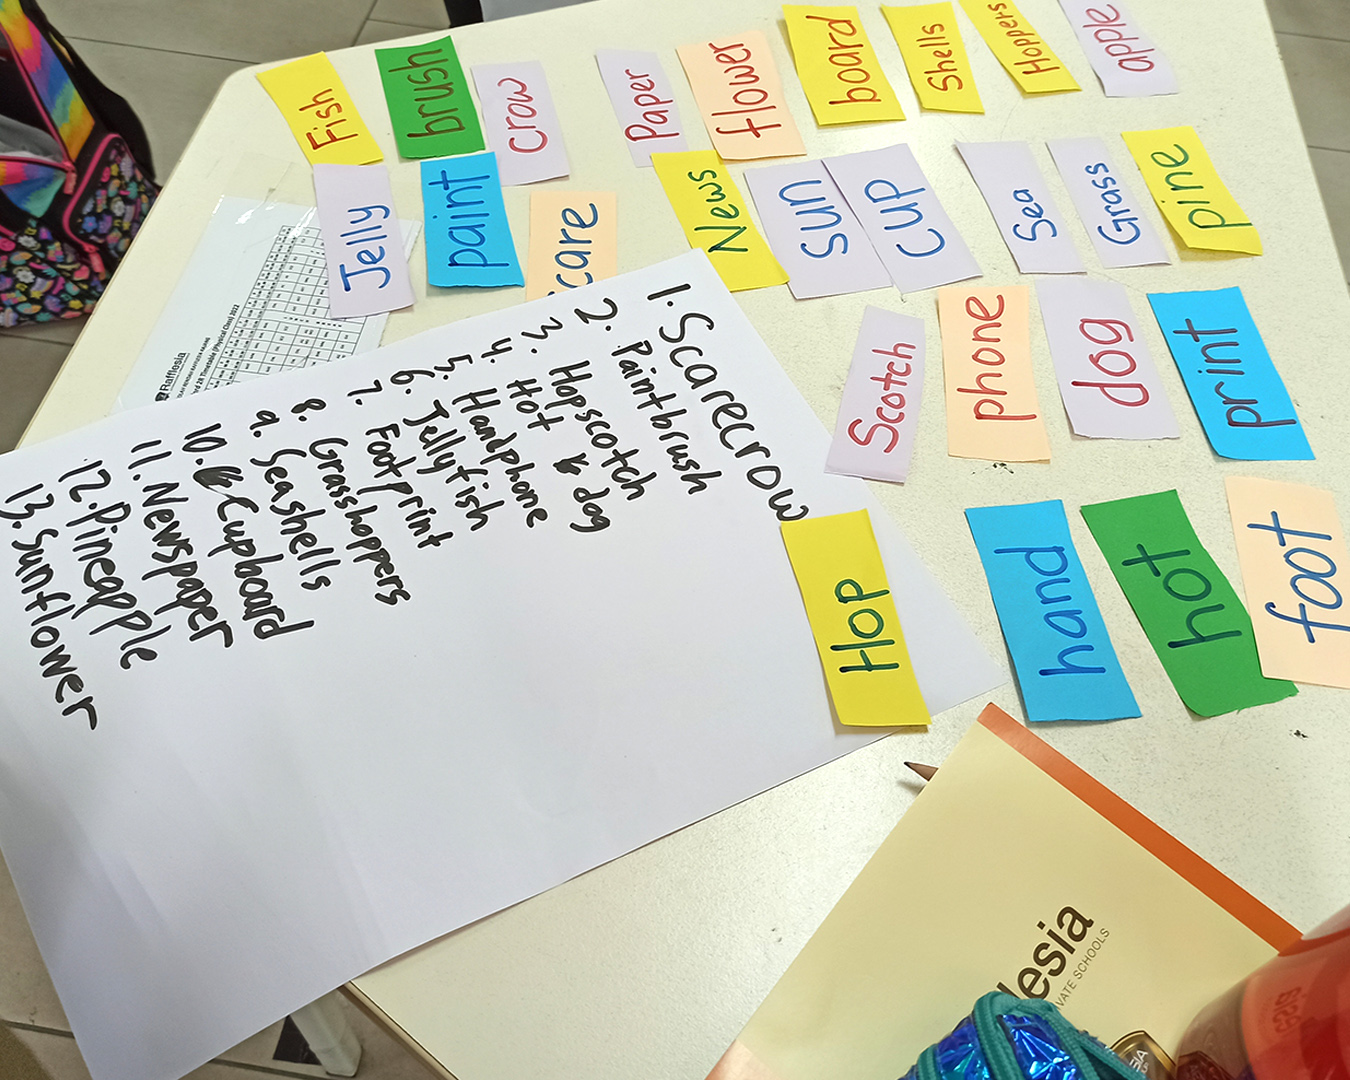 Fish
brush
crow
Paper
flower
board
Shells
Hoppers
apple
Jelly
paint
care
News
sun
cup
Sea
Grass
pine
Scotch
phone
dog
print
Hop
hand
hot
foot
1. Scarecrow
2. Paintbrush
3. Hopscotch
4. Hot dog
5. Handphone
6. Jellyfish
7. Footprint
8. Grasshoppers
9. Seashells
10. Cupboard
11. Newspaper
12. Pineapple
13. Sunflower
Rafflesia
Timetable (Physical Class) 2022
lesia
VATE SCHOOLS